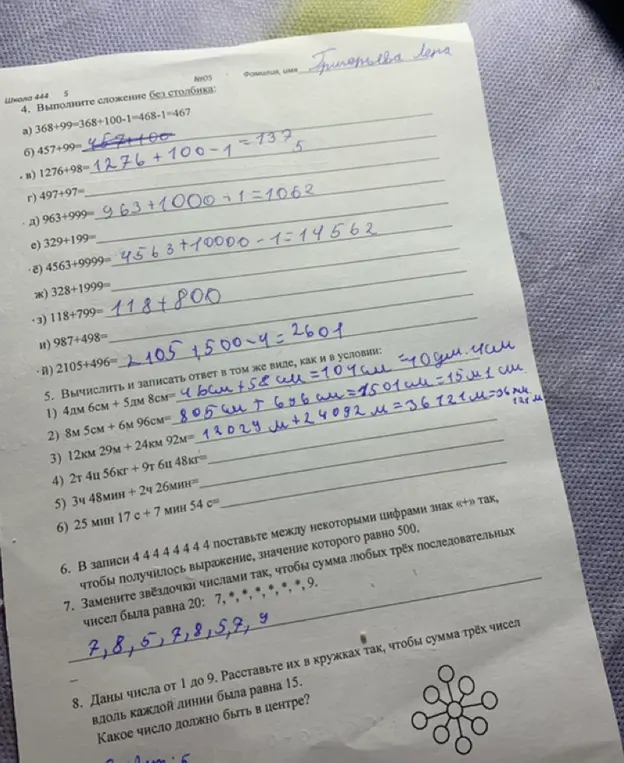 Школа 444 5 №03 Фамилия, имя Григорьева Лера
4. Выполните сложение без столбика:
а) 368+99=368+100-1=468-1=467
б) 457+99= 457+100
в) 1276+98= 1276+100-1=1375
г) 497+97=
д) 963+999= 963+1000-1=1062
е) 329+199=
ё) 4563+9999= 4563+10000-1=14562
ж) 328+1999=
з) 118+799= 118+800
и) 987+498=
й) 2105+496= 2105+500-4=2601
5. Вычислить и записать ответ в том же виде, как и в условии:
1) 4дм 6см + 5дм 8см= 46см+58см=104см=10дм.4см
2) 8м 5см + 6м 96см= 805см+696см=1501см=15м1см
3) 12км 29м + 24км 92м= 12029м+24092м=36121м=36км
121м
4) 2т 4ц 56кг + 9т 6ц 48кг=
5) 3ч 48мин + 2ч 26мин=
6) 25 мин 17 с + 7 мин 54 с=
6. В записи 4 4 4 4 4 4 4 4 поставьте между некоторыми цифрами знак «+» так,
чтобы получилось выражение, значение которого равно 500.
7. Замените звёздочки числами так, чтобы сумма любых трёх последовательных
чисел была равна 20: 7, *, *, *, *, *, *, 9.
7,8,5,7,8,5,7,9
8. Даны числа от 1 до 9. Расставьте их в кружках так, чтобы сумма трёх чисел
вдоль каждой линии была равна 15.
Какое число должно быть в центре?